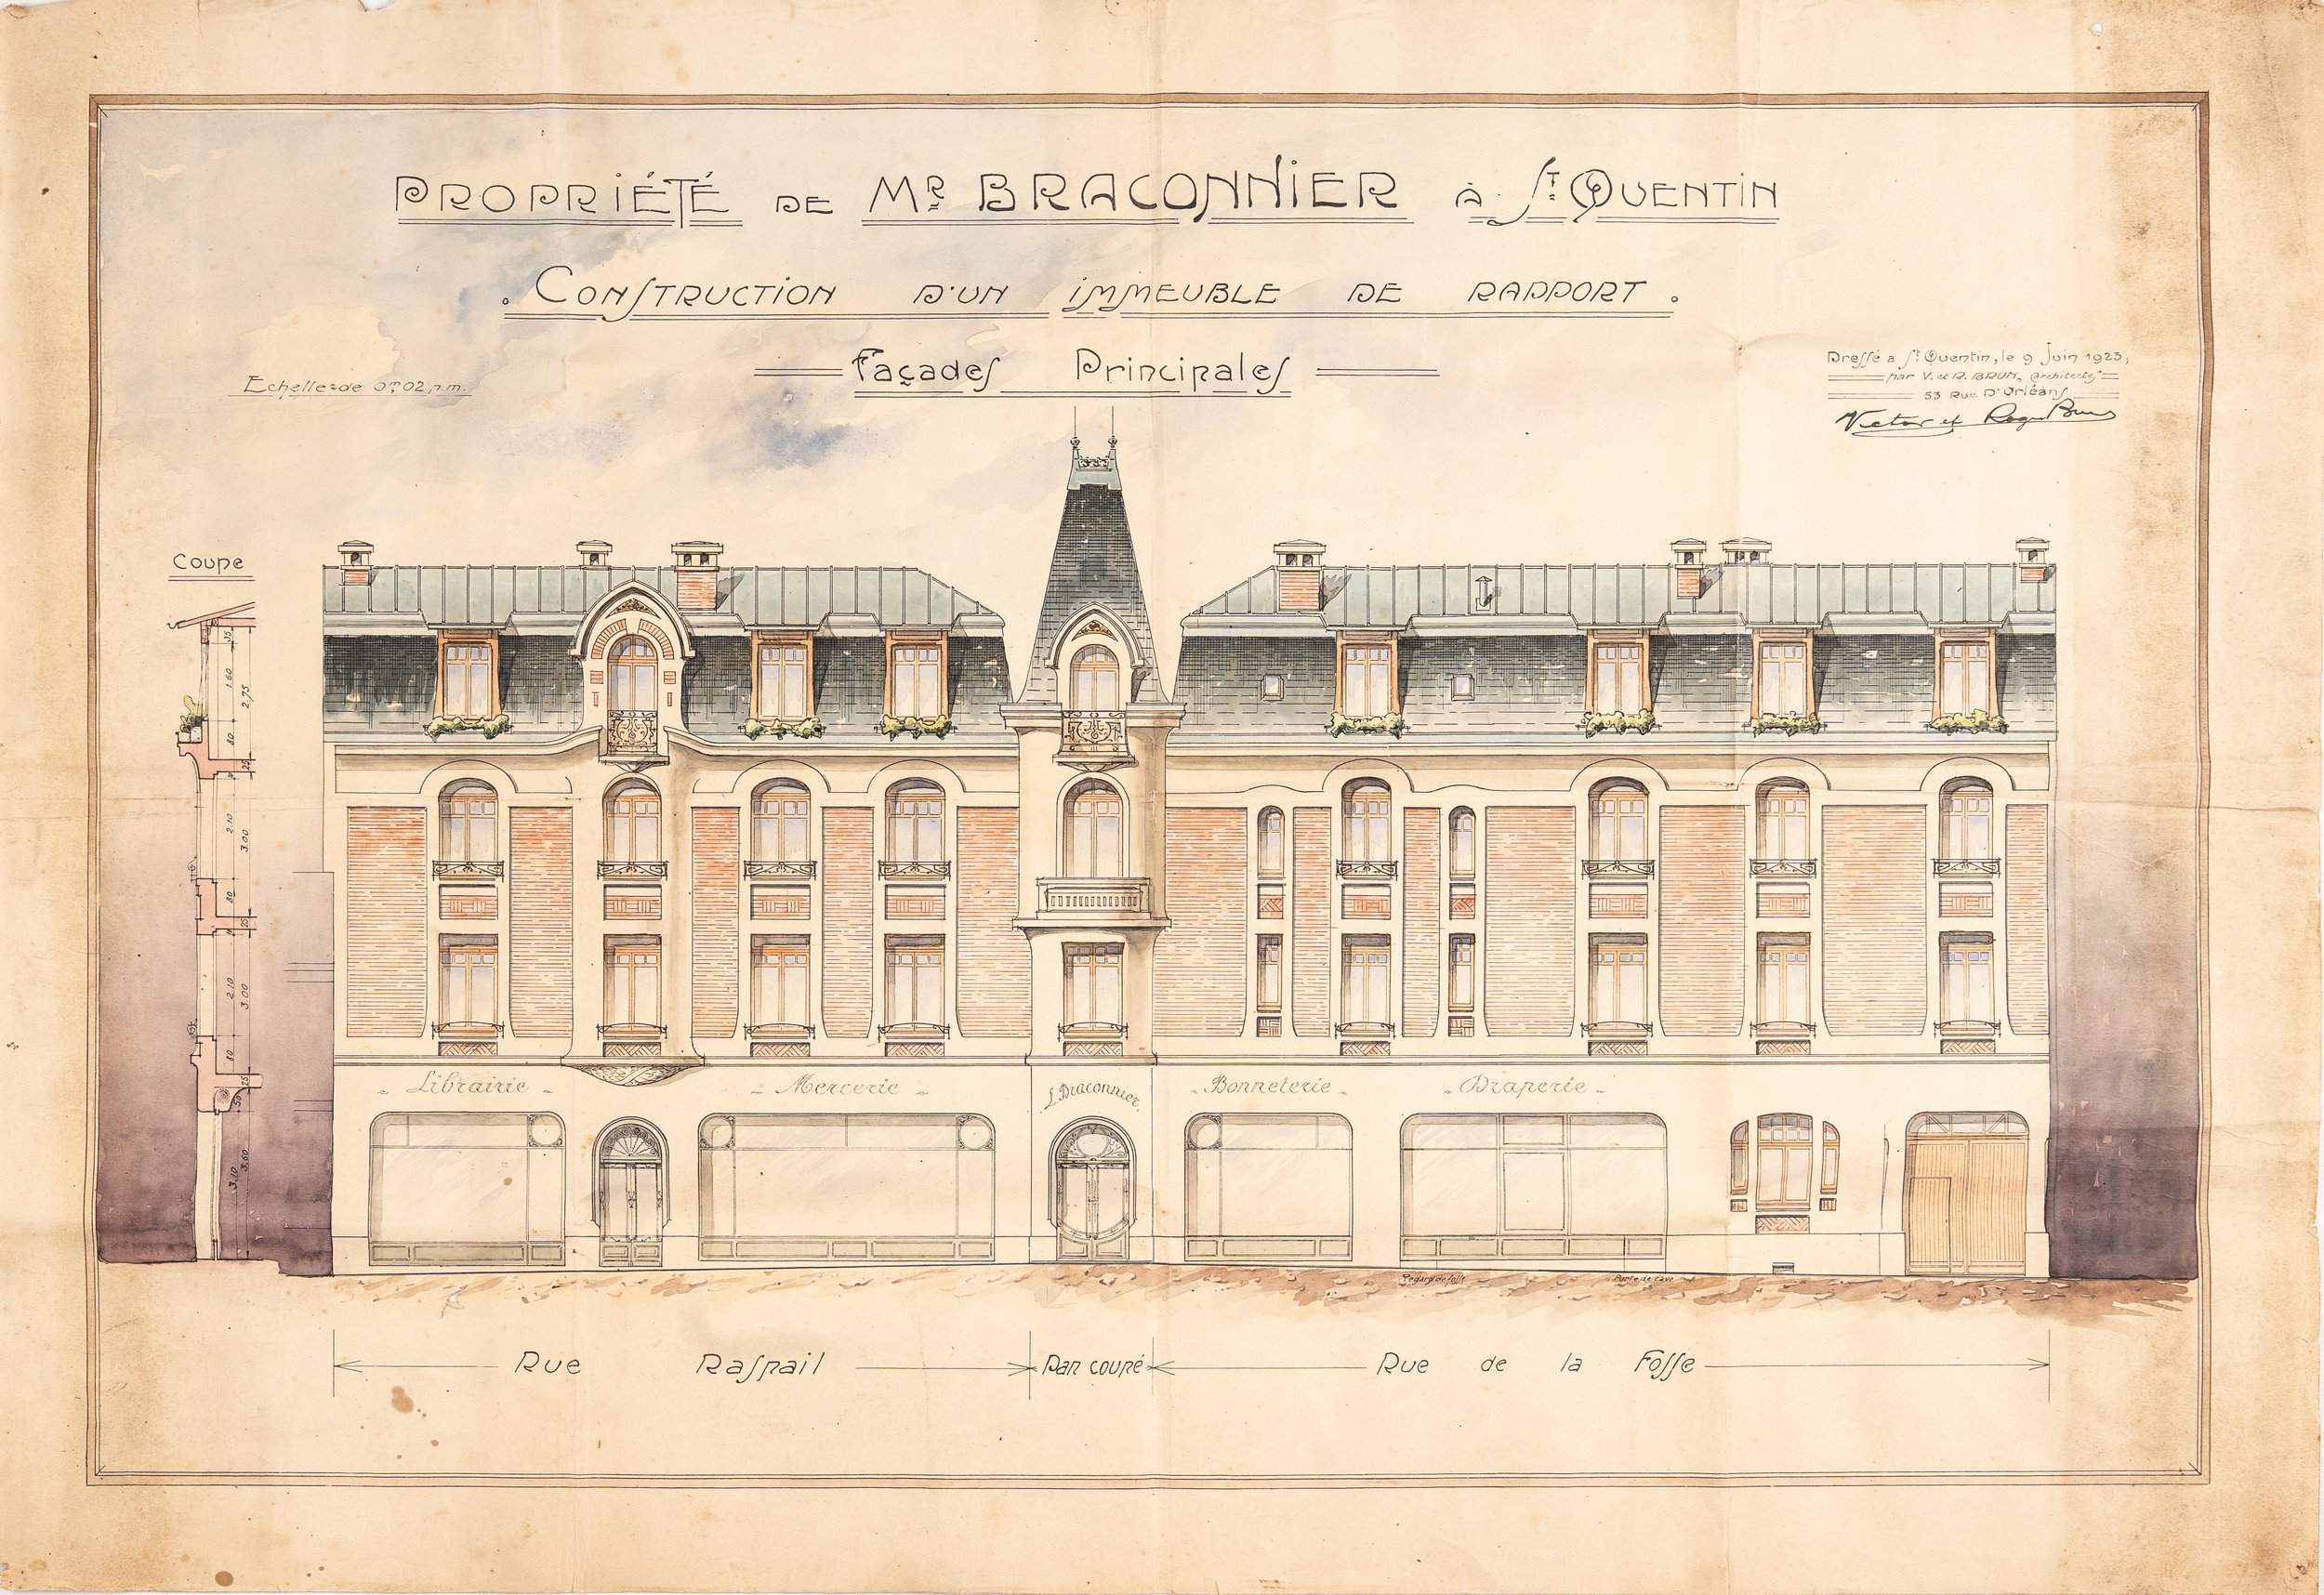 PROPRIÉTÉ DE MR BRACONNIER À ST QUENTIN
. CONSTRUCTION D'UN IMMEUBLE DE RAPPORT .
Façades Principales
Echelle de 0m02 p.m.
Dressé a St Quentin, le 9 Juin 1923,
par V. et R. BRUN, Architectes
53 Rue D'Orléans
Victor et Roger Brun
Coupe
35
1.60
2.75
80
25
2.10
3.00
80
25
2.10
3.00
80
25
50
3.10
3.60
- Librairie -
- Mercerie -
L. Braconnier.
- Bonneterie -
- Draperie -
Regard de fosse
Porte de cave
Rue Raspail
Pan coupé
Rue de la Fosse